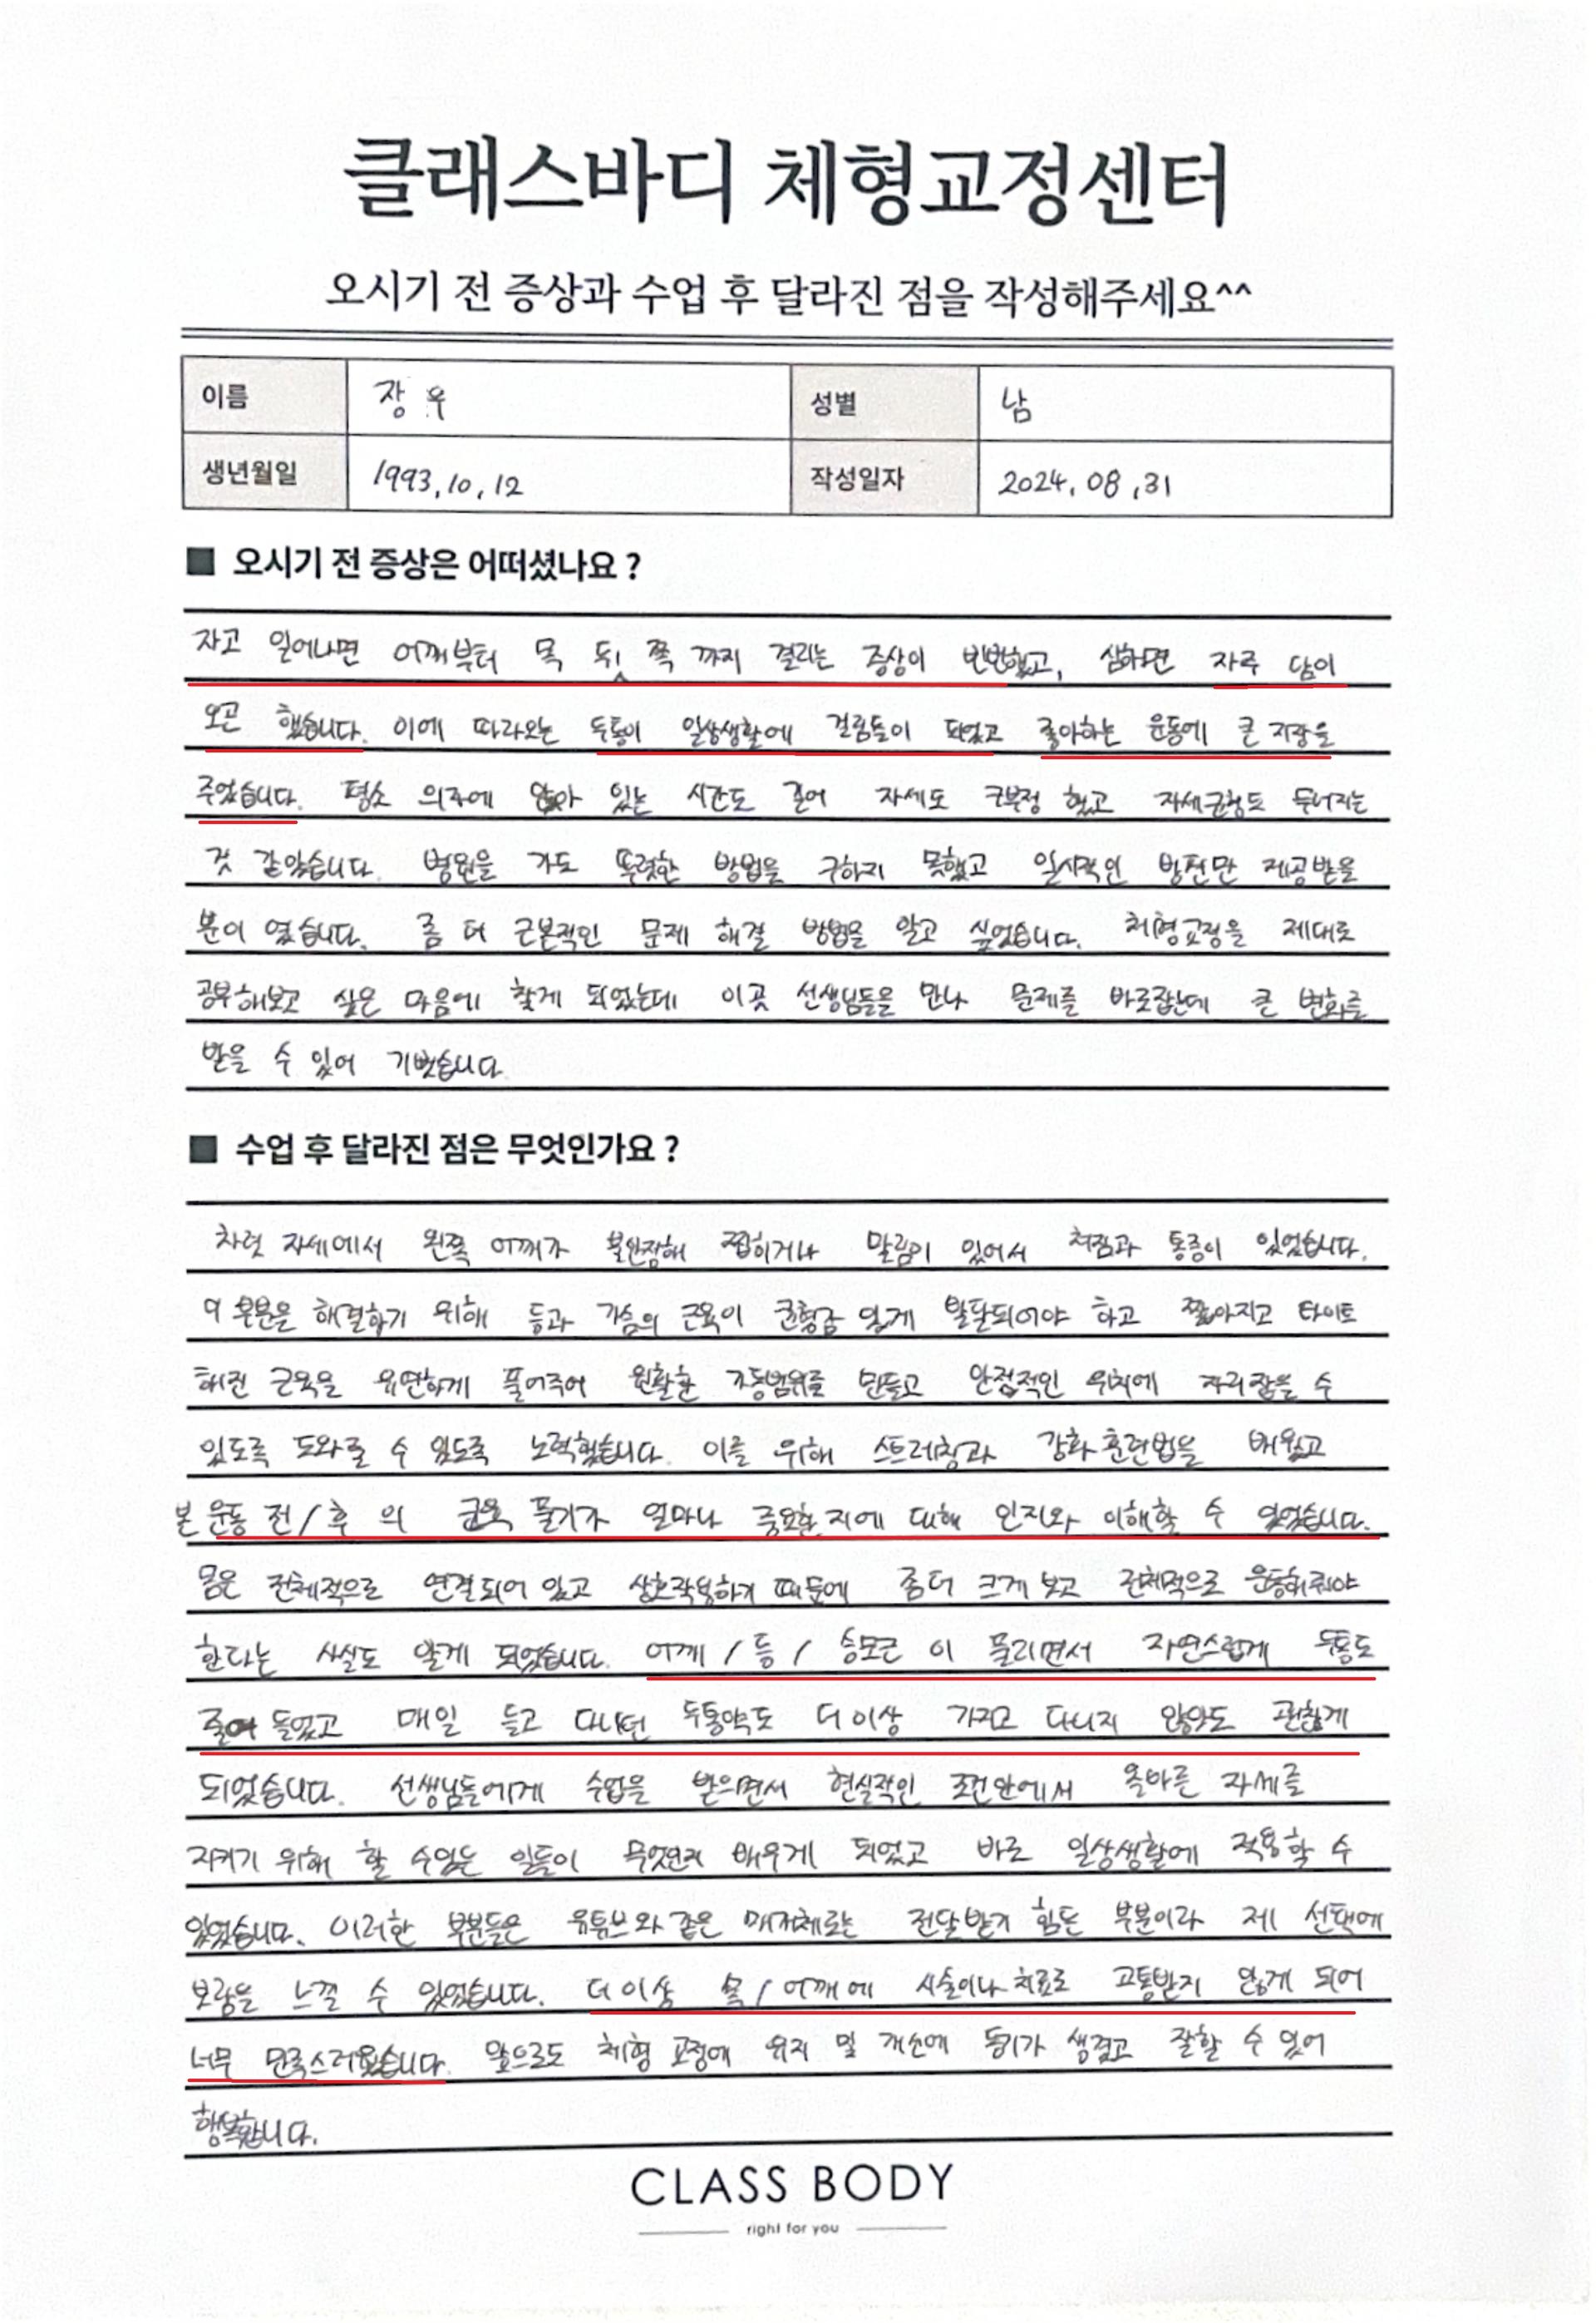 클래스바디 체형교정센터
오시기 전 증상과 수업 후 달라진 점을 작성해주세요^^
이름 장 우 성별 남
생년월일 1993.10.12 작성일자 2024.08.31
■ 오시기 전 증상은 어떠셨나요 ?
자고 일어나면 어깨부터 목 뒤 쪽 까지 결리는 증상이 빈번했고, 심하면 자주 담이
오곤 했습니다. 이에 따라오는 두통이 일상생활에 걸림돌이 되었고 좋아하는 운동에 큰 지장을
주었습니다. 평소 의자에 앉아 있는 시간도 길어 자세도 구부정 했고 자세균형도 무너지는
것 같았습니다. 병원을 가도 뚜렷한 방법을 구하지 못했고 일시적인 방편만 제공받을
뿐이 였습니다. 좀 더 근본적인 문제 해결 방법을 알고 싶었습니다. 체형교정을 제대로
공부해보고 싶은 마음에 찾게 되었는데 이곳 선생님들을 만나 문제를 바로잡는데 큰 변화를
받을 수 있어 기뻤습니다.
■ 수업 후 달라진 점은 무엇인가요 ?
차렷 자세에서 왼쪽 어깨가 불안정해 찝히거나 말림이 있어서 처짐과 통증이 있었습니다.
이 부분을 해결하기 위해 등과 가슴의 근육이 균형감 있게 발달되어야 하고 짧아지고 타이트
해진 근육을 유연하게 풀어주어 원활한 가동범위를 만들고 안정적인 위치에 자리잡을 수
있도록 도와줄 수 있도록 노력했습니다. 이를 위해 스트레칭과 강화 훈련법을 배웠고
본 운동 전/후 의 근육 풀기가 얼마나 중요한지에 대해 인지와 이해할 수 있었습니다.
몸은 전체적으로 연결되어 있고 상호작용하기 때문에 좀더 크게 보고 전체적으로 운동해줘야
한다는 사실도 알게 되었습니다. 어깨 / 등 / 승모근 이 풀리면서 자연스럽게 두통도
줄어 들었고 매일 들고 다니던 두통약도 더 이상 가지고 다니지 않아도 괜찮게
되었습니다. 선생님들에게 수업을 받으면서 현실적인 조건안에서 올바른 자세를
지키기 위해 할 수있는 일들이 무엇인지 배우게 되었고 바로 일상생활에 적용할 수
있었습니다. 이러한 부분들은 유튜브와 같은 매개체로는 전달받기 힘든 부분이라 제 선택에
보람을 느낄 수 있었습니다. 더 이상 목/어깨에 시술이나 치료로 고통받지 않게 되어
너무 만족스러웠습니다. 앞으로도 체형 교정에 유지 및 개선에 동기가 생겼고 잘할 수 있어
행복합니다.
CLASS BODY
right for you